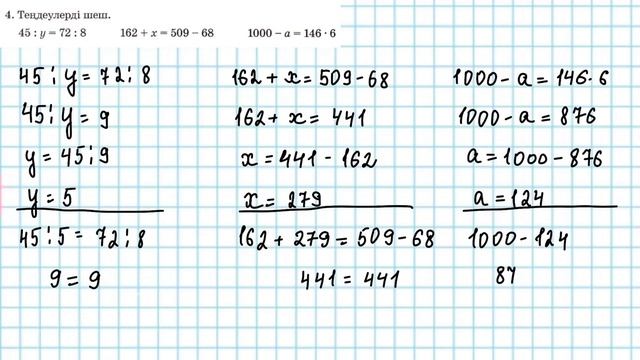 4. Теңдеулерді шеш.
45 : y = 72 : 8 162 + x = 509 − 68 1000 − a = 146 · 6
45 : y = 72 : 8
45 : y = 9
y = 45 : 9
y = 5
45 : 5 = 72 : 8
9 = 9
162 + x = 509 − 68
162 + x = 441
x = 441 − 162
x = 279
162 + 279 = 509 − 68
441 = 441
1000 − a = 146 · 6
1000 − a = 876
a = 1000 − 876
a = 124
1000 − 124
87